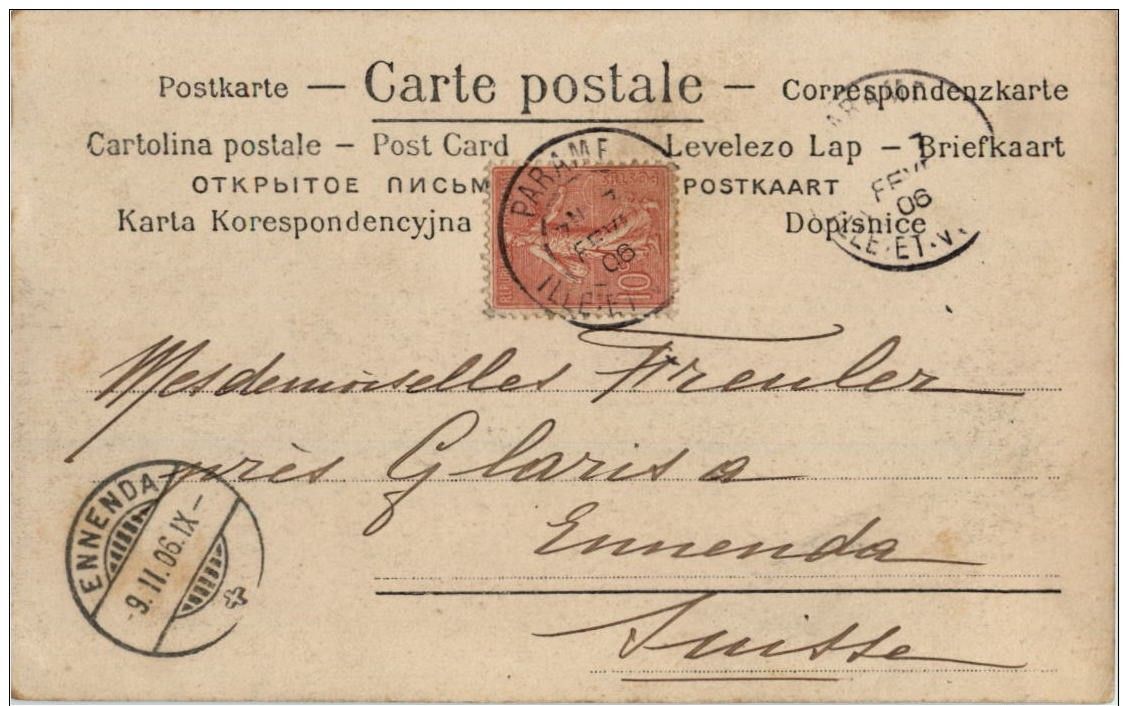 Postkarte — Carte postale — Correspondenzkarte
Cartolina postale – Post Card Levelezo Lap – Briefkaart
ОТКРЫТОЕ ПИСЬМ POSTKAART
Karta Korespondencyjna Dopisnice
PARAME
7
FEVR
06
ILLE-ET
POSTES
10
ARAM
7
FEVR
06
ILLE-ET-V
Mesdemoiselles Freuler
près Glaris a
Ennenda
Suisse
ENNENDA
-9.II.06.IX-